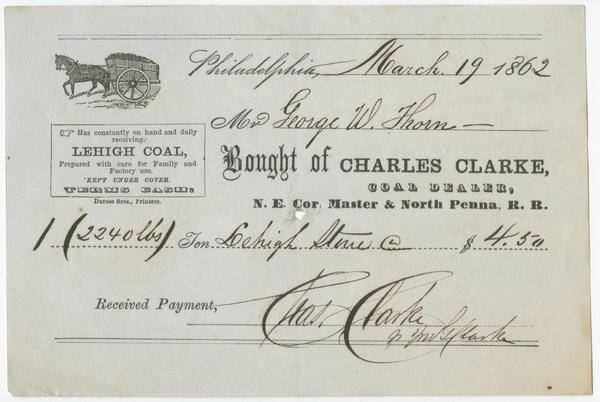 Philadelphia, March 19 1862
Mr George W. Thorn
☞ Has constantly on hand and daily
receiving,
LEHIGH COAL,
Prepared with care for Family and
Factory use.
KEPT UNDER COVER.
TERMS CASH.
Duross Bros., Printers.
Bought of CHARLES CLARKE,
COAL DEALER,
N. E. Cor. Master & North Penna. R. R.
1 (2240 lbs) Ton Lehigh Stove @ $ 4.50
Received Payment, Chas. Clarke
Clarke